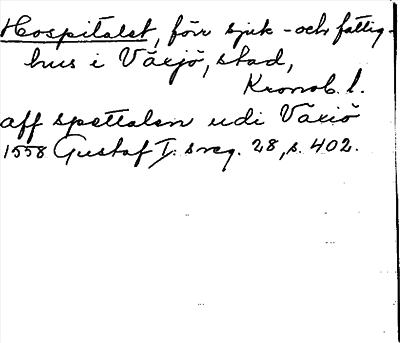 Hospitalet, förr sjuk- och fattig-
hus i Växjö, stad,
Kronob. l.
aff spettalen udi Växiö
1558 Gustaf I:s reg. 28, s. 402.